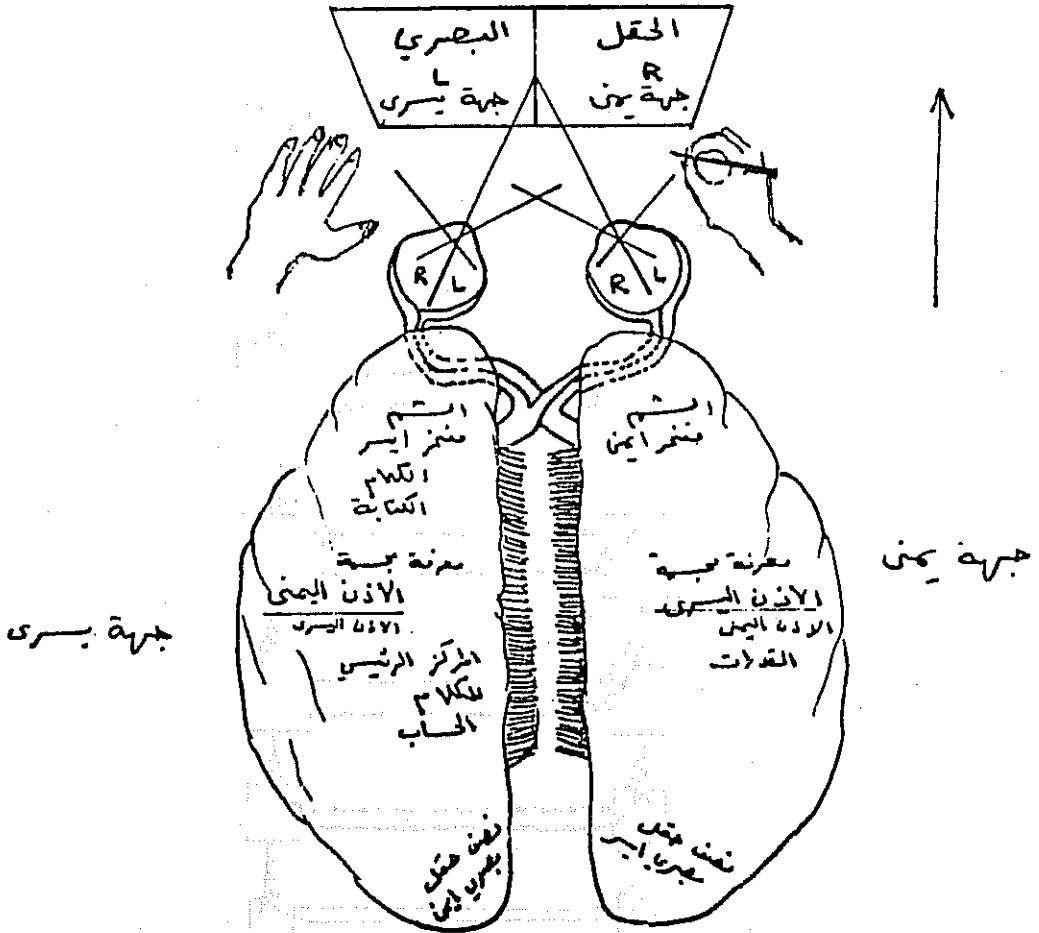 الحقل
R
جهة يمنى
البصري
L
جهة يسرى
R
L
R
L
الشم
منخر ايمن
الشم
منخر ايسر
الكلام
الكتابة
معرفة مجسمة
الأذن اليسرى
الاذن اليمنى
القدرات
معرفة مجسمة
الاذن اليمنى
الاذن اليسرى
المركز الرئيسي
للكلام
الحساب
جهة يمنى
جهة يسرى
نصف حقل
بصري ايسر
نصف حقل
بصري ايمن